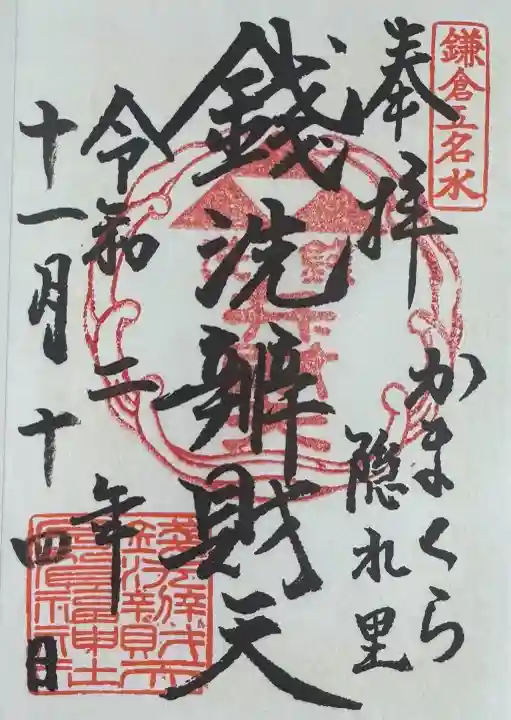 鎌倉五名水
奉拝
かまくら
隠れ里
銭洗辧財天
令和二年
十一月二十四日